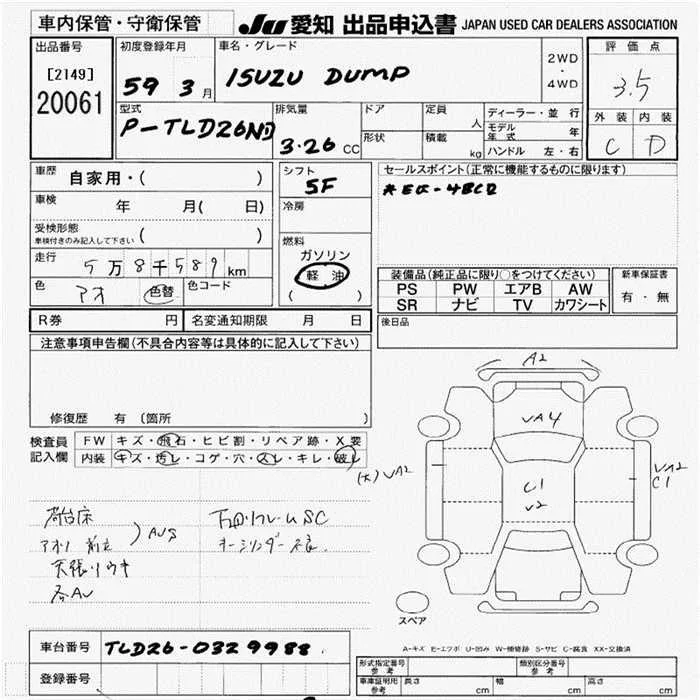 車内保管・守衛保管 JU 愛知 出品申込書 JAPAN USED CAR DEALERS ASSOCIATION
出品番号 [2149] 20061
初度登録年月 59 3月
車名・グレード ISUZU DUMP
2WD・4WD
評価点 3.5
外装 C 内装 D
型式 P-TLD26ND
排気量 3.26 CC
ドア 形状
定員 人
積載 kg
ディーラー・並行
モデル年式 年
ハンドル 左・右
車歴 自家用・( )
車検 年 月( 日)
受検形態 ( )
車検付きのみ記入して下さい
走行 5万8千589km
色 アオ 色替 色コード
シフト 5F
冷房
燃料 ガソリン
軽油
( )
セールスポイント(正常に機能するものに限ります)
装備品(純正品に限り○をつけてください)
PS PW エアB AW
SR ナビ TV カワシート
新車保証書
有・無
R券 円 名変通知期限 月 日
後日品
注意事項申告欄(不具合内容等は具体的に記入して下さい)
修復歴 有 (箇所
検査員記入欄
FW キズ・飛石・ヒビ割・リペア跡・X要
内装 キズ・汚レ・コゲ・穴・スレ・キレ・破レ
A2
VA4
C1
V2
(大)VA2
VA2
C1
荷台床
AUS
各AU
スペア
A-キズ E-エクボ U-凹み W-補修跡 S-サビ C-腐食 XX-交換済
車台番号 TLD26-0329988
登録番号
形式指定番号 参考
類別区分番号 参考
車庫証明用 参考 長さ cm 幅 cm 高さ cm